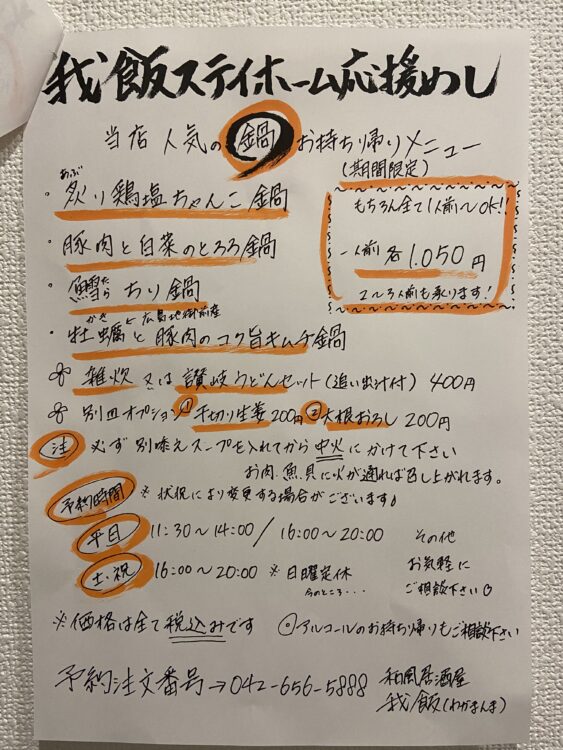 我飯ステイホーム応援めし
当店 人気の 鍋 お持ち帰りメニュー
(期間限定)
あぶ
・炙り鶏塩ちゃんこ鍋
もちろん全て1人前〜OK!!
一人前 各1.050円
2〜3人前も承ります!
・豚肉と白菜のとろろ鍋
・鱈ちり鍋
たら
かき ← 広島地御前産
・牡蠣と豚肉のコク旨キムチ鍋
雑炊 又は 讃岐うどんセット(追い出汁付) 400円
別皿オプション ①千切り生姜 200円 ②大根おろし 200円
注 必ず 別添えスープを入れてから中火にかけて下さい
お肉.魚.貝に火が通れば召し上がれます。
予約時間 ※状況により変更する場合がございます♪
平日 11:30〜14:00/16:00〜20:00
土・祝 16:00〜20:00 ※日曜定休
今のところ...
その他
お気軽に
ご相談下さい
※価格は全て税込みです
◎アルコールのお持ち帰りもご相談下さい
予約注文番号→042-656-5888
和風居酒屋
我飯(わがまんま)